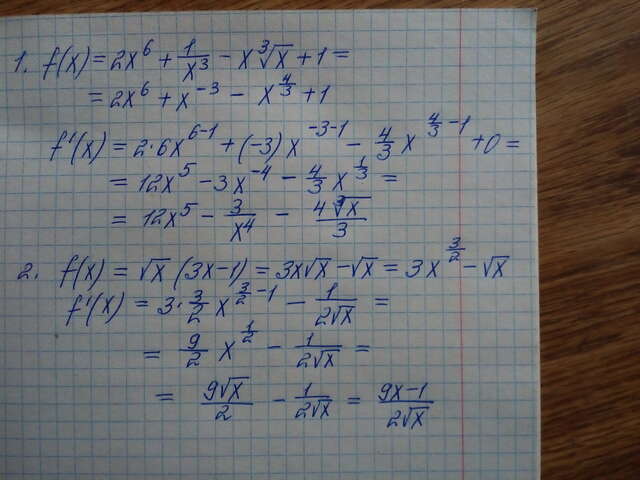 1. f(x) = 2x⁶ + 1/x³ - x∛x + 1 =
= 2x⁶ + x⁻³ - x^(4/3) + 1
f'(x) = 2·6x^(6-1) + (-3)x^(-3-1) - 4/3 x^(4/3 - 1) + 0 =
= 12x⁵ - 3x⁻⁴ - 4/3 x^(1/3) =
= 12x⁵ - 3/x⁴ - 4∛x/3
2. f(x) = √x (3x-1) = 3x√x - √x = 3x^(3/2) - √x
f'(x) = 3·3/2 x^(3/2 - 1) - 1/(2√x) =
= 9/2 x^(1/2) - 1/(2√x) =
= 9√x/2 - 1/(2√x) = (9x-1)/(2√x)